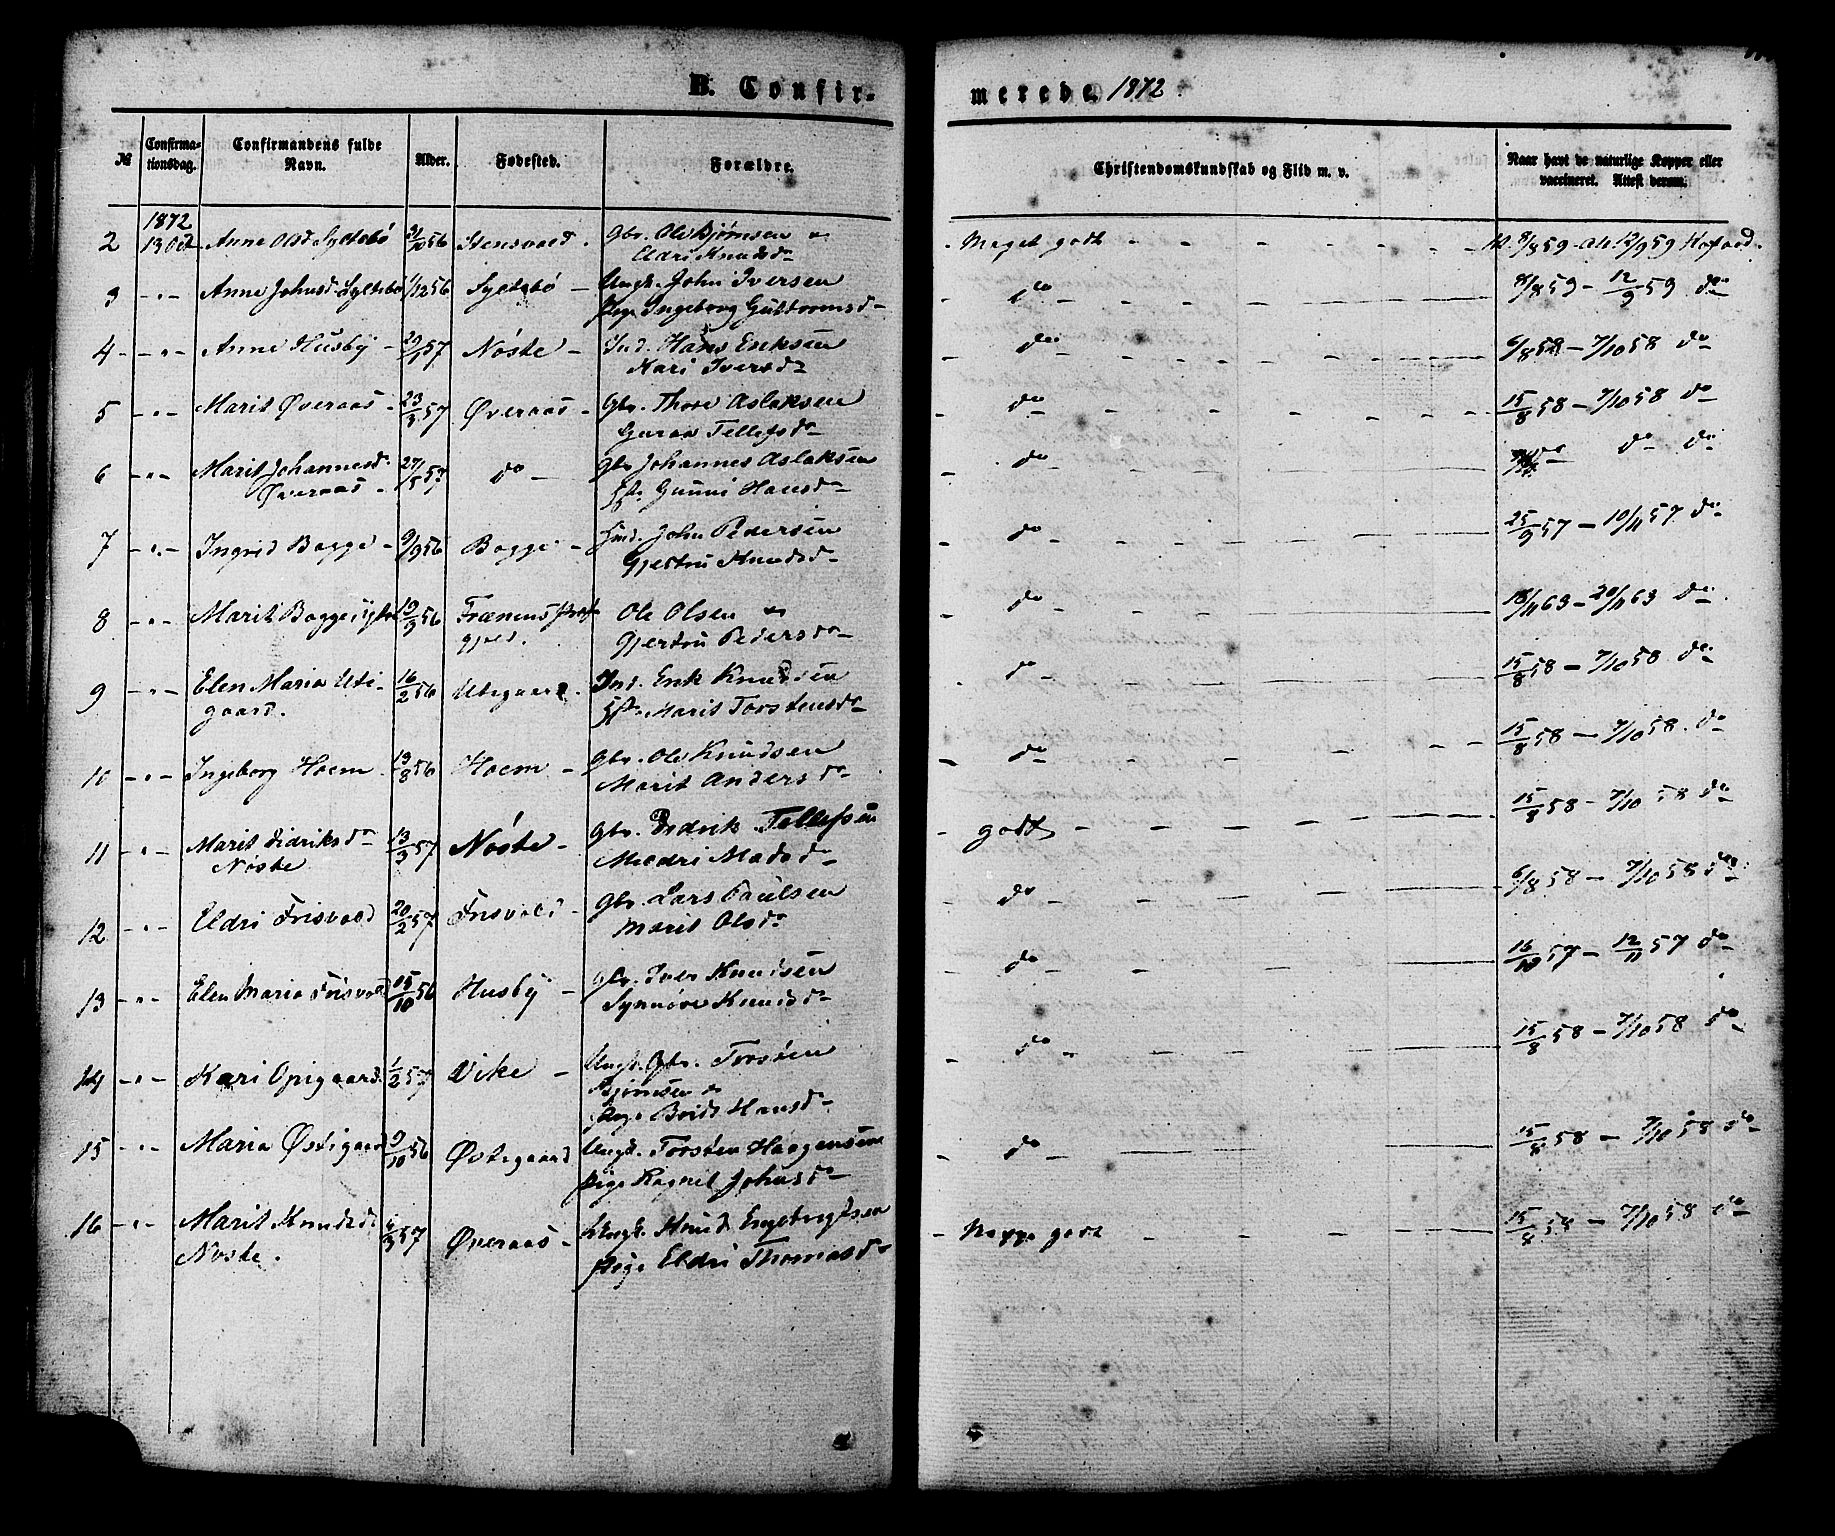 B. Confirmerede 1872.
№ Confirmationsdag. Confirmandens fulde Navn. Alder. Fødested. Forældre. Christendomskundskab og Flid m. v. Naar havt de naturlige Kopper eller vaccineret. Attest derom.
1872
2 13 Oct Anne Olsd Syltebø 31/10 56 Stensvold. Gbr. Ole Bjørnsen Meget godt 8/8 59 - 12/9 59
Eldri Knudsd
3 - " - Anne Johnsd. Syltebø 1/12 56 Syltebø - Ungk. John Iversen do 8/8 59 - 12/9 59 do
Pige Ingeborg Guttormsd
4 - " - Anne Husby - 29/1 57 Nøste - Ind. Hans Eriksen do 6/8 58 - 7/10 58 do
Kari Iversd
5 - " - Marit Øveraas - 23/3 57 Øveraas - Gbr. Thore Aslaksen do 15/8 58 - 7/10 58 do
Guroa Tellefsd
6 - " - Marit Johannesd. 27/5 57 do - Gbr Johannes Aslaksen do do do do
Øveraas - Gunni Hansd
7 - " - Ingrid Bogge - 9/9 56 Bogge - Ind. John Pedersen do 25/9 57 - 10/11 57 do
Gjertru Knudsd
8 - " - Marit Boggesytre 19/9 56 Frænens Præstegjeld. Ole Olsen do 18/11 63 - 20/11 63 do
Gjertru Pedersd
9 - " - Elen Maria Uti- 16/2 56 Utigaard. Ind. Erik Knudsen do 15/8 58 - 7/10 58 do
gaard. Marit Torstensd
10 - " - Ingeborg Hoem 19/8 56 Hoem - Gbr. Ole Knudsen do 15/8 58 - 7/10 58. do
Marit Andersd
11 - " - Marit Didriksd 13/3 57 Nøste - Gbr. Didrik Tellefsen godt 15/8 58 - 7/10 58 do
Nøste Meldri Madsd
12 - " - Eldri Frisvold 20/2 57 Frisvold - Gbr. Lars Paulsen do 6/8 58 - 7/10 58 do
Marit Olsd
13 - " - Elen Maria Frisvold 15/10 56 Husby - Gbr. Iver Knudsen do 16/10 57 - 12/11 57 do
Synnøve Knudsd
14 - " - Kari Opigaard 1/2 57 Vike - Ungk. Gbr. Torsten do 15/8 58 - 7/10 58 do
Bjørnsen
Pige Brit Hansd
15 - " - Maria Østigaard 9/10 56 Østigaard Ungk. Torsten Haagensen do 15/8 58 - 7/10 58 do
Pige Ragnel Johnsd
16 - " - Marit Knudsd 6/3 57 Øveraas - Ungk. Knud Engebrigtsen Neppe godt 15/8 58 - 7/10 58 do
Nøste. Pige Eldri Thomasd